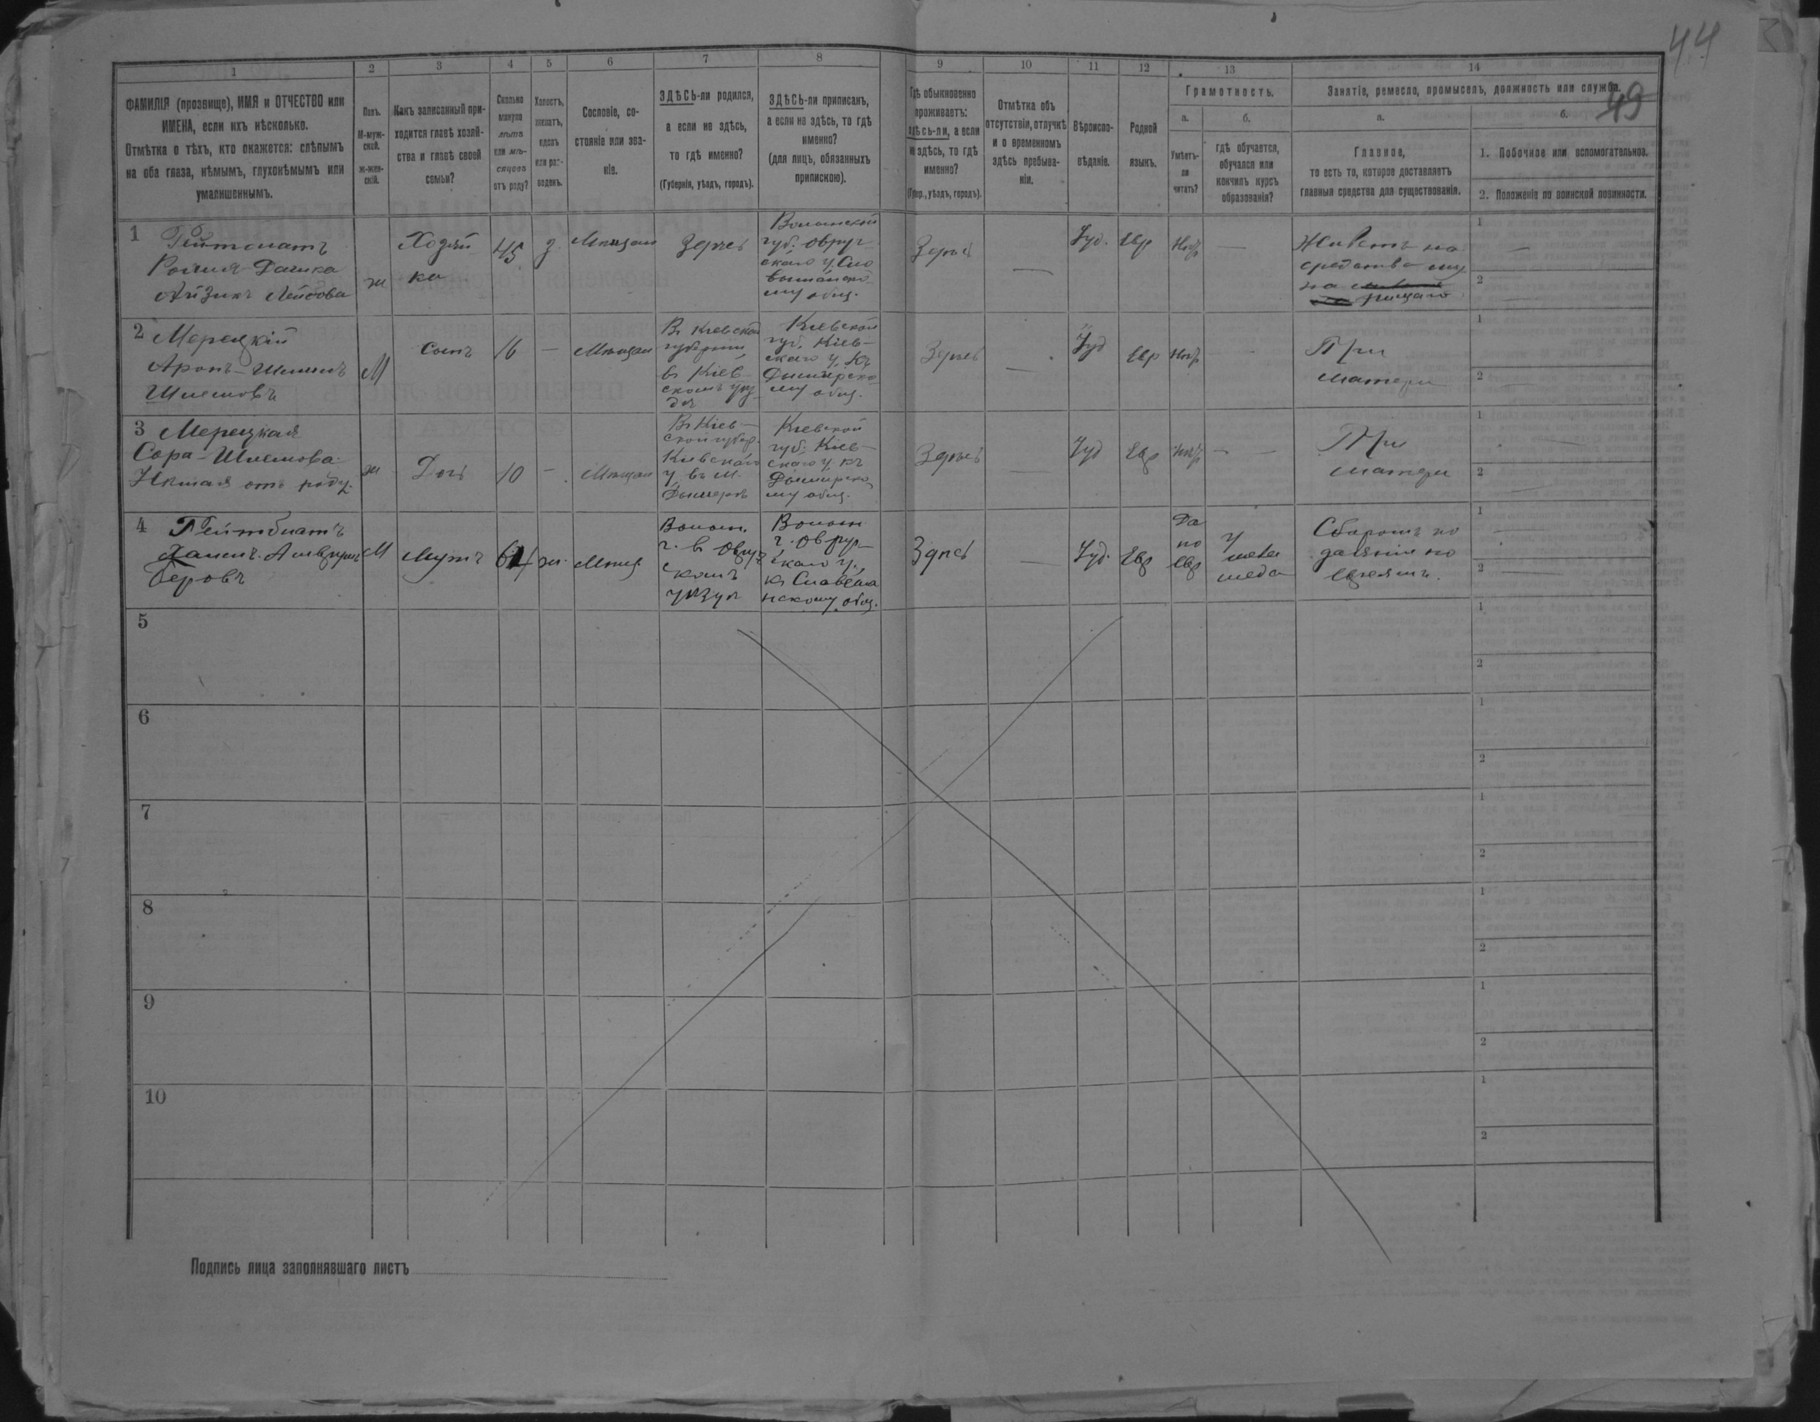 44
49
1
2
3
4
5
6
7
8
9
10
11
12
13
14
ФАМИЛІЯ (прозвище), ИМЯ и ОТЧЕСТВО или
ИМЕНА, если ихъ нѣсколько.
Отмѣтка о тѣхъ, кто окажется: слѣпымъ
на оба глаза, нѣмымъ, глухонѣмымъ или
умалишеннымъ.
Полъ.
М-муж-
ской.
Ж-жен-
скій.
Какъ записанный при-
ходится главѣ хозяй-
ства и главѣ своей
семьи?
Сколько
минуло
лѣтъ
или мѣ-
сяцевъ
отъ роду?
Холостъ,
женатъ,
вдовъ
или раз-
веденъ.
Сословіе, со-
стояніе или зва-
ніе.
ЗДѢСЬ-ли родился,
а если не здѣсь,
то гдѣ именно?
(Губернія, уѣздъ, городъ).
ЗДѢСЬ-ли приписанъ,
а если не здѣсь, то гдѣ
именно?
(для лицъ, обязанныхъ
припискою).
Гдѣ обыкновенно
проживаетъ:
здѣсь-ли, а если
не здѣсь, то гдѣ
именно?
(Губер., уѣздъ, городъ).
Отмѣтка объ
отсутствіи, отлучкѣ
и о временномъ
здѣсь пребыва-
ніи.
Вѣроиспо-
вѣданіе.
Родной
языкъ.
Грамотность.
а.
Умѣетъ-
ли
читать?
б.
гдѣ обучается,
обучался или
кончилъ курсъ
образованія?
Занятіе, ремесло, промыселъ, должность или служба.
а.
Главное,
то есть то, которое доставляетъ
главныя средства для существованія.
б.
1. Побочное или вспомогательное.
2. Положеніе по воинской повинности.
1
ж
Хозяй
ка
45
Здѣсь
Волынской
губ. Овруч-
скаго у.
общ.
Здѣсь
Іуд.
Евр
Нѣтъ
Живетъ на
средства му
1
2
2 Мерецкій
Аронъ-
М
Сынъ
16
Мѣщан
Въ Кіевской
губерніи
въ Кіев-
скомъ уѣз
дѣ
Кіевской
губ. Кіев-
скаго у. къ
Дымирско-
му общ.
Здѣсь
Іуд
Евр
Нѣтъ
При
матери
1
2
3 Мерецкая
Сора-
Нѣмая отъ роду.
ж
Дочь
10
Мѣщан
Въ Кіев-
ской губер.
Кіевскаго
у. въ м.
Дымеръ
Кіевской
губ. Кіев-
скаго у. къ
Дымирско
му общ.
Здѣсь
Іуд
Евр
Нѣтъ
При
матери
1
2
4
Беровъ
М
Мужъ
64
ж.
Мѣщ
Волын.
г. въ Овруч
скомъ
уѣздѣ
Волын
г. Овруч-
скаго у.,
къ Словеча
нскому общ.
Здѣсь
Іуд.
Евр
Да
по
евр
У
меда
Сборомъ по
даянія по
евреямъ.
1
2
5
1
2
6
1
2
7
1
2
8
1
2
9
1
2
10
1
2
Подпись лица заполнявшаго листъ